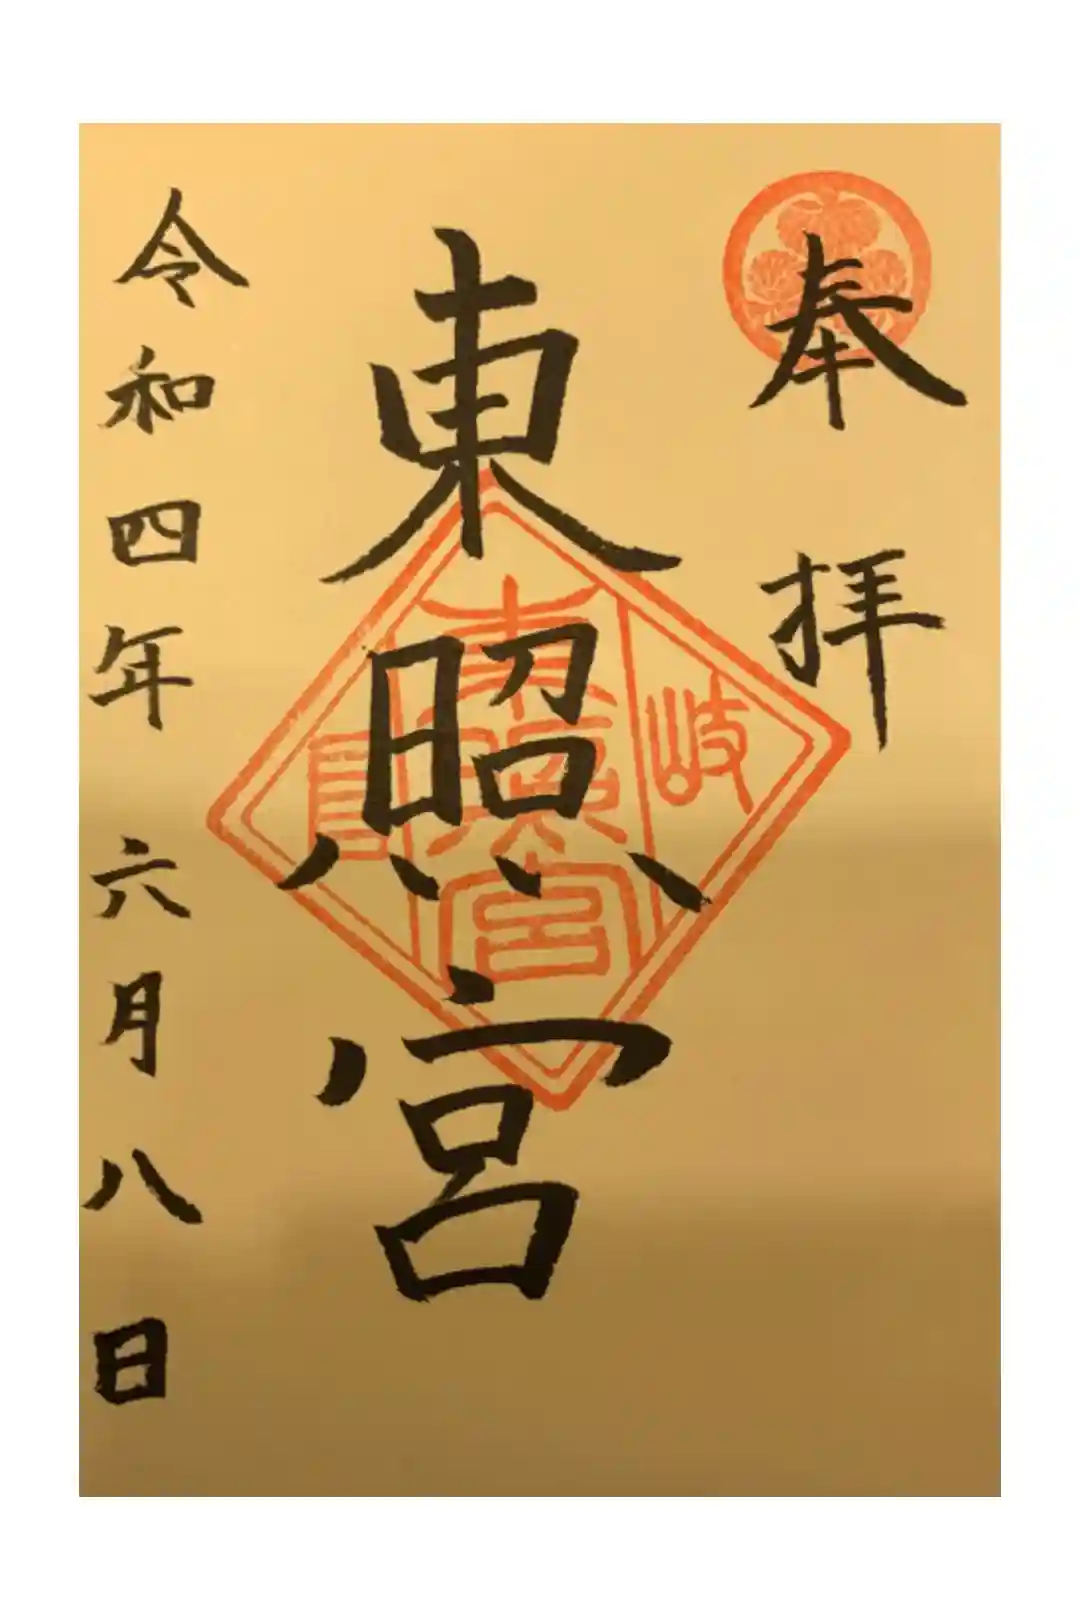 奉拝
東照宮
岐
東照宮
令和四年 六月八日